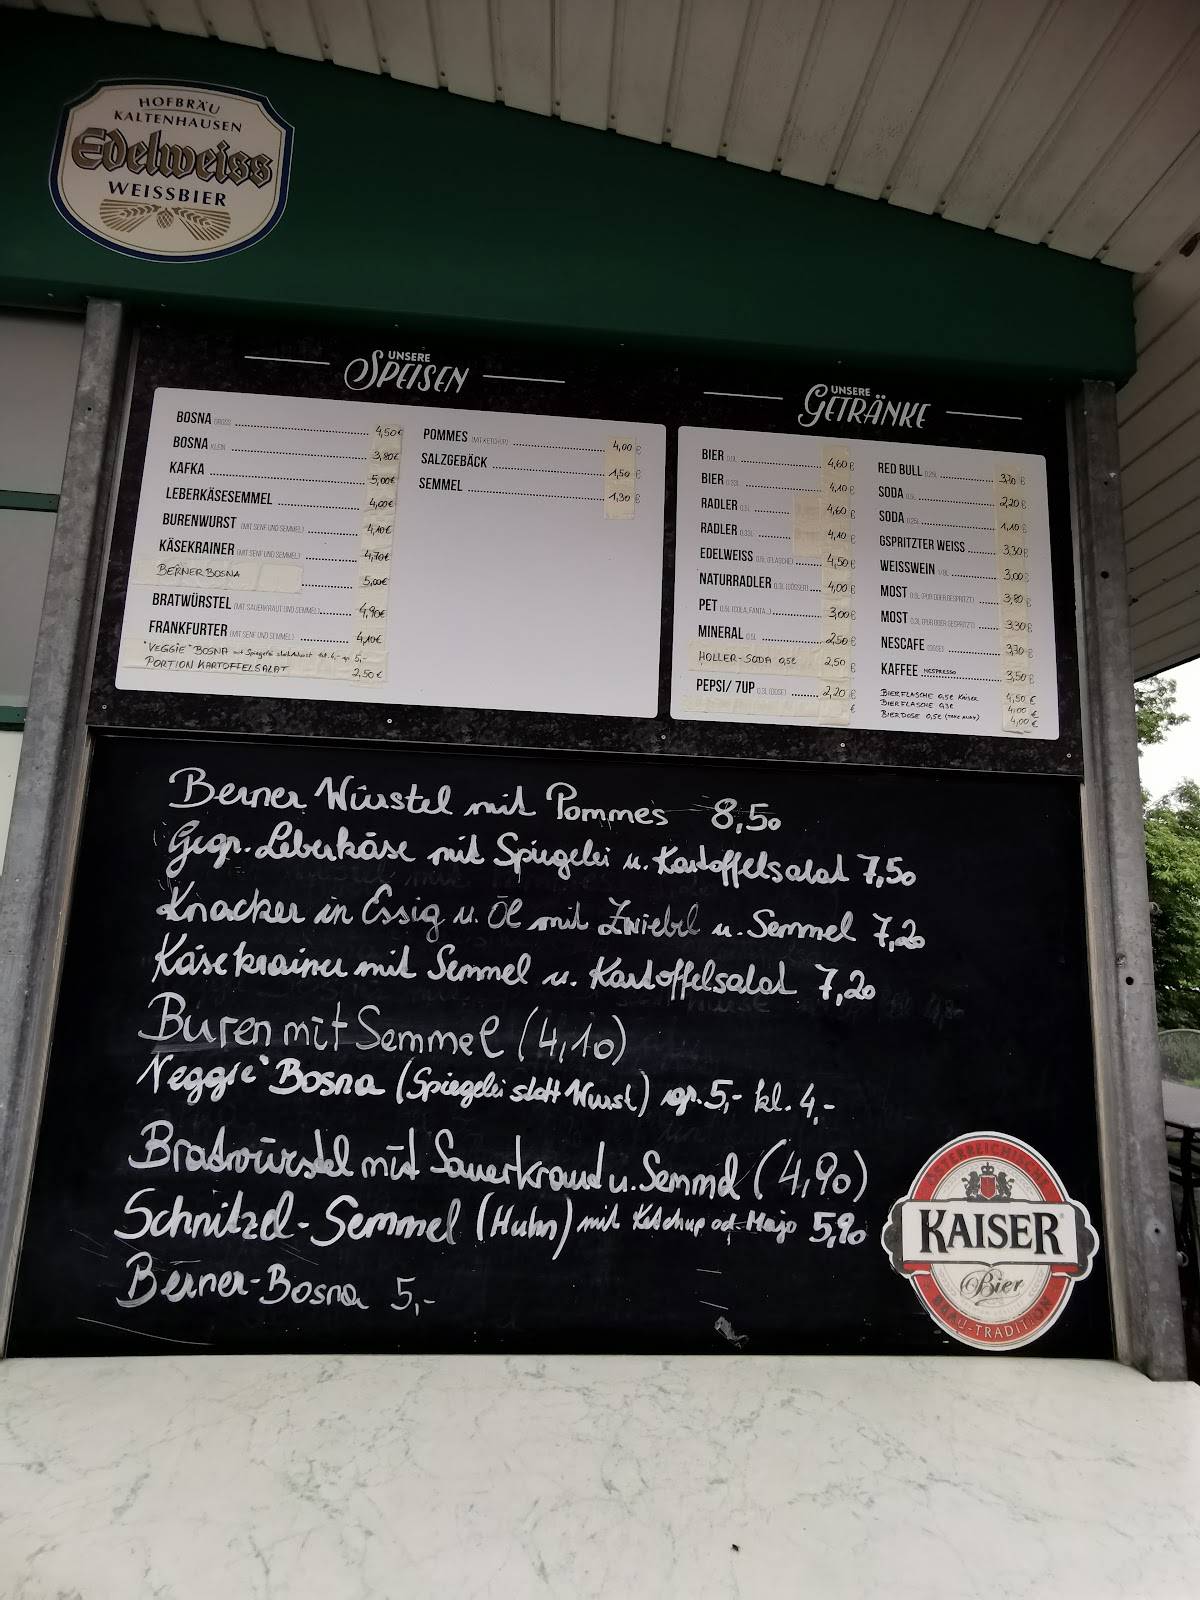 HOFBRÄU
KALTENHAUSEN
Edelweiss
WEISSBIER
UNSERE
SPEISEN
BOSNA GROSS 4,50€
BOSNA KLEIN 3,80€
KAFKA 5,00€
LEBERKÄSESEMMEL 4,00€
BURENWURST (MIT SENF UND SEMMEL) 4,10€
KÄSEKRAINER (MIT SENF UND SEMMEL) 4,70€
BERNER BOSNA 5,00€
BRATWÜRSTEL (MIT SAUERKRAUT UND SEMMEL) 4,90€
FRANKFURTER (MIT SENF UND SEMMEL) 4,10€
"VEGGIE" BOSNA mit Spiegelei statt Wurst kl. 4,- gr. 5,-
PORTION KARTOFFELSALAT 2,50€
POMMES (MIT KETCHUP) 4,00 €
SALZGEBÄCK 1,50 €
SEMMEL 1,30 €
UNSERE
GETRÄNKE
BIER 0,5L 4,60 €
BIER 0,33L 4,10 €
RADLER 0,5L 4,60 €
RADLER 0,33L 4,10 €
EDELWEISS 0,5L (FLASCHE) 4,50 €
NATURRADLER 0,5L (GÖSSER) 4,00 €
PET 0,5L (COLA, FANTA...) 3,00 €
MINERAL 0,5L 2,50 €
HOLLER-SODA 0,5l 2,50 €
PEPSI/ 7UP 0,3L (DOSE) 2,20 €
€
RED BULL 0,25L 3,70 €
SODA 0,5L 2,20 €
SODA 0,25L 1,10 €
GSPRITZTER WEISS 3,30 €
WEISSWEIN 1/8L 3,00 €
MOST 0,5L (PUR ODER GESPRITZT) 3,80 €
MOST 0,3L (PUR ODER GESPRITZT) 3,30 €
NESCAFE (DOSE) 3,70 €
KAFFEE NESPRESSO 3,50 €
BIERFLASCHE 0,5l KAISER 4,50 €
BIERFLASCHE 0,3l 4,00 €
BIERDOSE 0,5l (TAKE AWAY) 4,00 €
Berner Würstel mit Pommes 8,50
Gegr. Leberkäse mit Spiegelei u. Kartoffelsalat 7,50
Knacker in Essig u. Öl mit Zwiebel u. Semmel 7,20
Käsekrainer mit Semmel u. Kartoffelsalat 7,20
Buren mit Semmel (4,10)
Veggie" Bosna (Spiegelei statt Wurst) gr. 5,- kl. 4,-
Bratwürstel mit Sauerkraut u. Semmel (4,90)
Schnitzel-Semmel (Huhn) mit Ketchup od. Mayo 5,90
Berner-Bosna 5,-
ÖSTERREICHISCHE
KAISER
Bier
BRAU-TRADITION